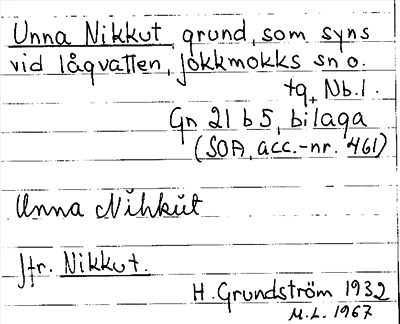 Unna Nikkut, grund, som syns
vid lågvatten, Jokkmokks sn o.
tg, Nb.l.
Gn 21 b 5, bilaga
(SOA, acc.-nr. 461)
Unna Nihkŭt
Jfr. Nikkut.
H. Grundström 1932
M.L. 1967